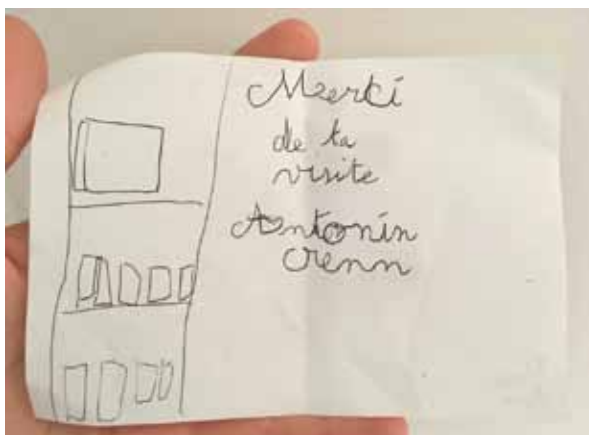 Merci
de ta
visite
Antonin
crenn